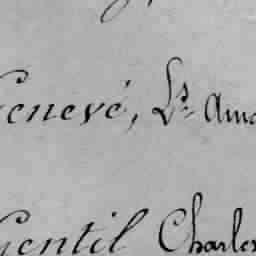 Genevé, Ls. Ama
Gentil Charles